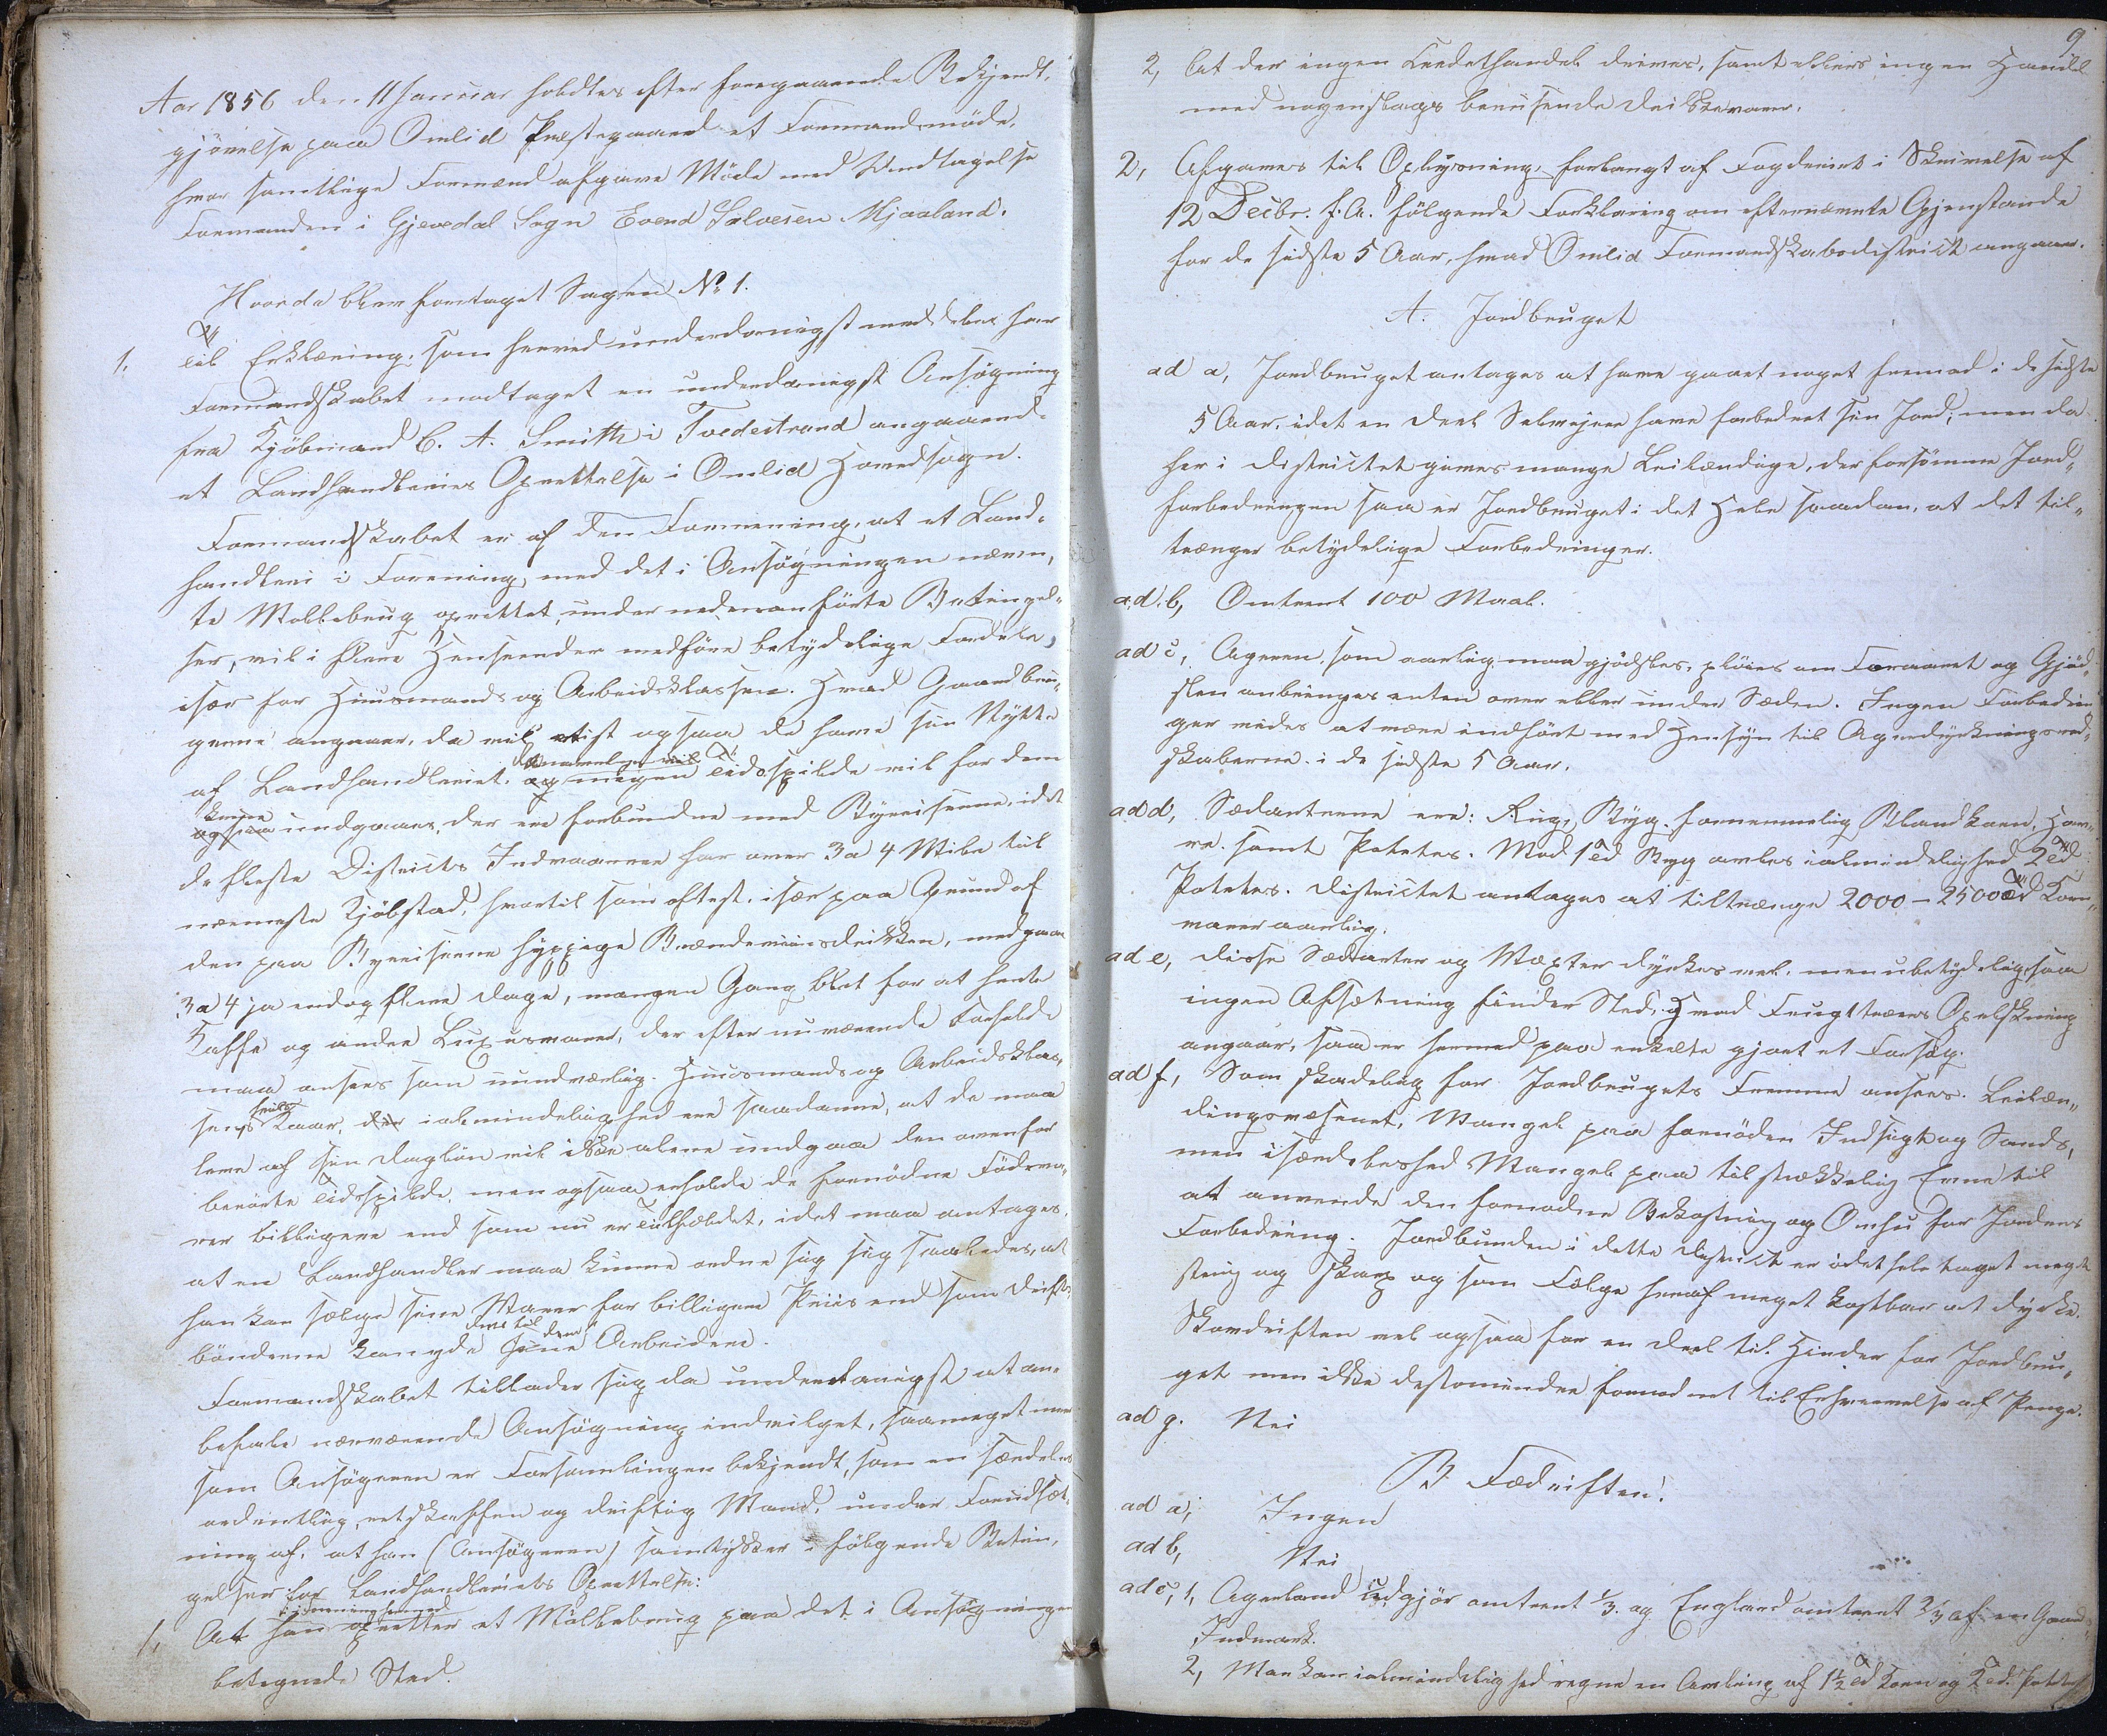 Aar 1856 den 11 Januar holdtes efter foregaaende Bekjendt,
gjörelse paa Omlid Præstegaard et Formandsmöde,
hvor samtlige Formænd afgave Möde med Undtagelse
Formanden i Gjevedal Sogn Evend Salvesen Mjaaland.
Hvorda blev foretaget Sagen No 1.
1. Til Erklæring, som herved underdanigst meddeles har
Formandskabet modtaget en underdanigst Ansøgning
fra Kjöbmand C. A. Smith i Tvedestrand angaaende
et Landhandleries Oprettelse i Omlid Hovedsogn.
Formandskabet er af den Formening, at et Land-
handleri i Forening, med det i Ansøgningen nævn,
te Möllebrug oprettet, under nedenanförte Betingel-
ser, vil i flere Henseender medföre betydelige Fordele,
især for Huusmands- og Arbeidsklassen. Hvad Gaardbru-
gerne angaaer, da vil vist ogsaa de have sin Nytte
af Landhandleriet. og megen Tidsspilde vil for dem
kunne
ogsaa undgaaes, der ere forbundne med Byreiserne, idet
de fleste Districts Indvaanere har over 3 a 4 Mile til
nærmeste Kjöbstad, hvortil som oftest, især paa Grund af
den paa Byreiserne hyppige Brændeviinsdrikken, medgaar
3 a 4 ja endog flere Dage, mangen Gang blot for at hente
Kaffe og andre Luxusvarer, der efter nuværende Forholde
maa ansees som uundværlig. Huusmands og Arbeidsklas,
sens Kaar, der i almindelighed ere saadanne, at de maa
leve af sin Daglön vil ikke alene undgaa den ovenfor
berörte Tidsspilde, men ogsaa erholde de fornödne Födeva,
rer billigere end som nu er Tilfældet, idet maa antages,
at en Landhandler maa kunne ordne sig sig saaledes, at
han kan sælge sine Varer for billigere Priis end som Drifts,
bönderne kan yde dem til sine Arbeidere.
Formandskabet tillader sig da underdanigst at an-
befale nærværende Ansøgning indvilget, saameget mere
som Ansøgeren er Forsamlingen bekjendt, som en særdeles
ordentlig, retskaffen og driftig Mand, under Forudsæt,
ning af, at han (Ansøgeren) samtykker i følgende Betin,
gelser for Landhandleriets Oprettelse:
i Forening hermed
1, At han opretter et Möllebrug paa det i Ansøgningen
betegnede Sted.
9
2, At der ingen Creditshandel drives, samt ellers ingen Handel
med nogenslags berusende Drikkevarer.
2, Afgaves til Oplysning, forlangt af Fogderiet i Skrivelse af
12 Decbr. f. A. følgende Forklaring om efternævnte Gjenstande
for de sidste 5 Aar, hvad Omlid Formandskabsdistrict angaar.
A. Jordbruget
ad a, Jordbruget antages at have gaaet noget fremad i de sidste
5 Aar, idet en Deel Selveiere have forbedret sin Jord; men da
her i Districtet gives mange Leilændige, der forsömme Jord,,
forbedringen saa er Jordbruget i det Hele saadan, at det til,,
trænger betydelige Forbedringer.
ad. b, Omtrent 100 Maal.
ad c, Ageren, som aarlig maa gjödsles, plöies om Foraaret og Gjöd,
selen anbringes enten over eller under Sæden. Ingen Forbedrin
ger vides at være indfört med Hensyn til Agerdyrkningsred,
skaberne i de sidste 5 Aar.
ad d, Sædarterne ere: Rug, Byg fornemmelig, Blandkorn, Hav,,
re samt Poteter. Mod 1 Td Byg avles i almindelighed 2 Td
Poteter. Districtet antages at tiltrænge 2000 - 2500 Td Korn,,
varer aarlig.
ad e, Disse Sædarter og Væxter dyrkes vel, men ubetydelig, saa
ingen Afsætning finder Sted. Hvad Frugttræers Opelskning
angaar, saa er hermed paa enkelte gjort et Forsög.
ad f, Som skadelig for Jordbrugets Fremme ansees. Leilæn,,
dingsvæsenet, Mangel paa fornöden Indsigt og Sands,
men isærdeleshed Mangel paa tilstrækkelig Evne til
at anvende den fornödne Bekostning og Omhu for Jordens
Forbedring. Jordbunden i dette District er i det hele taget meget
steinig og skarp og som Følge heraf meget kostbar at dyrke.
Skovdriften vel ogsaa for en Deel til Hinder for Jordbru,,
get men ikke destomindre fornödent til Erhvervelse af Penge.
ad g. Nei
B Fædriften.
ad a, Ingen
ad b, Nei
ad c, 1, Agerland udgjör omtrent 1/3. og England omtrent 2/3 af en Gaards
Indmark.
2, Man kan i almindelighed regne en Avling af 1½ Td Korn og 2 Td. Poteter